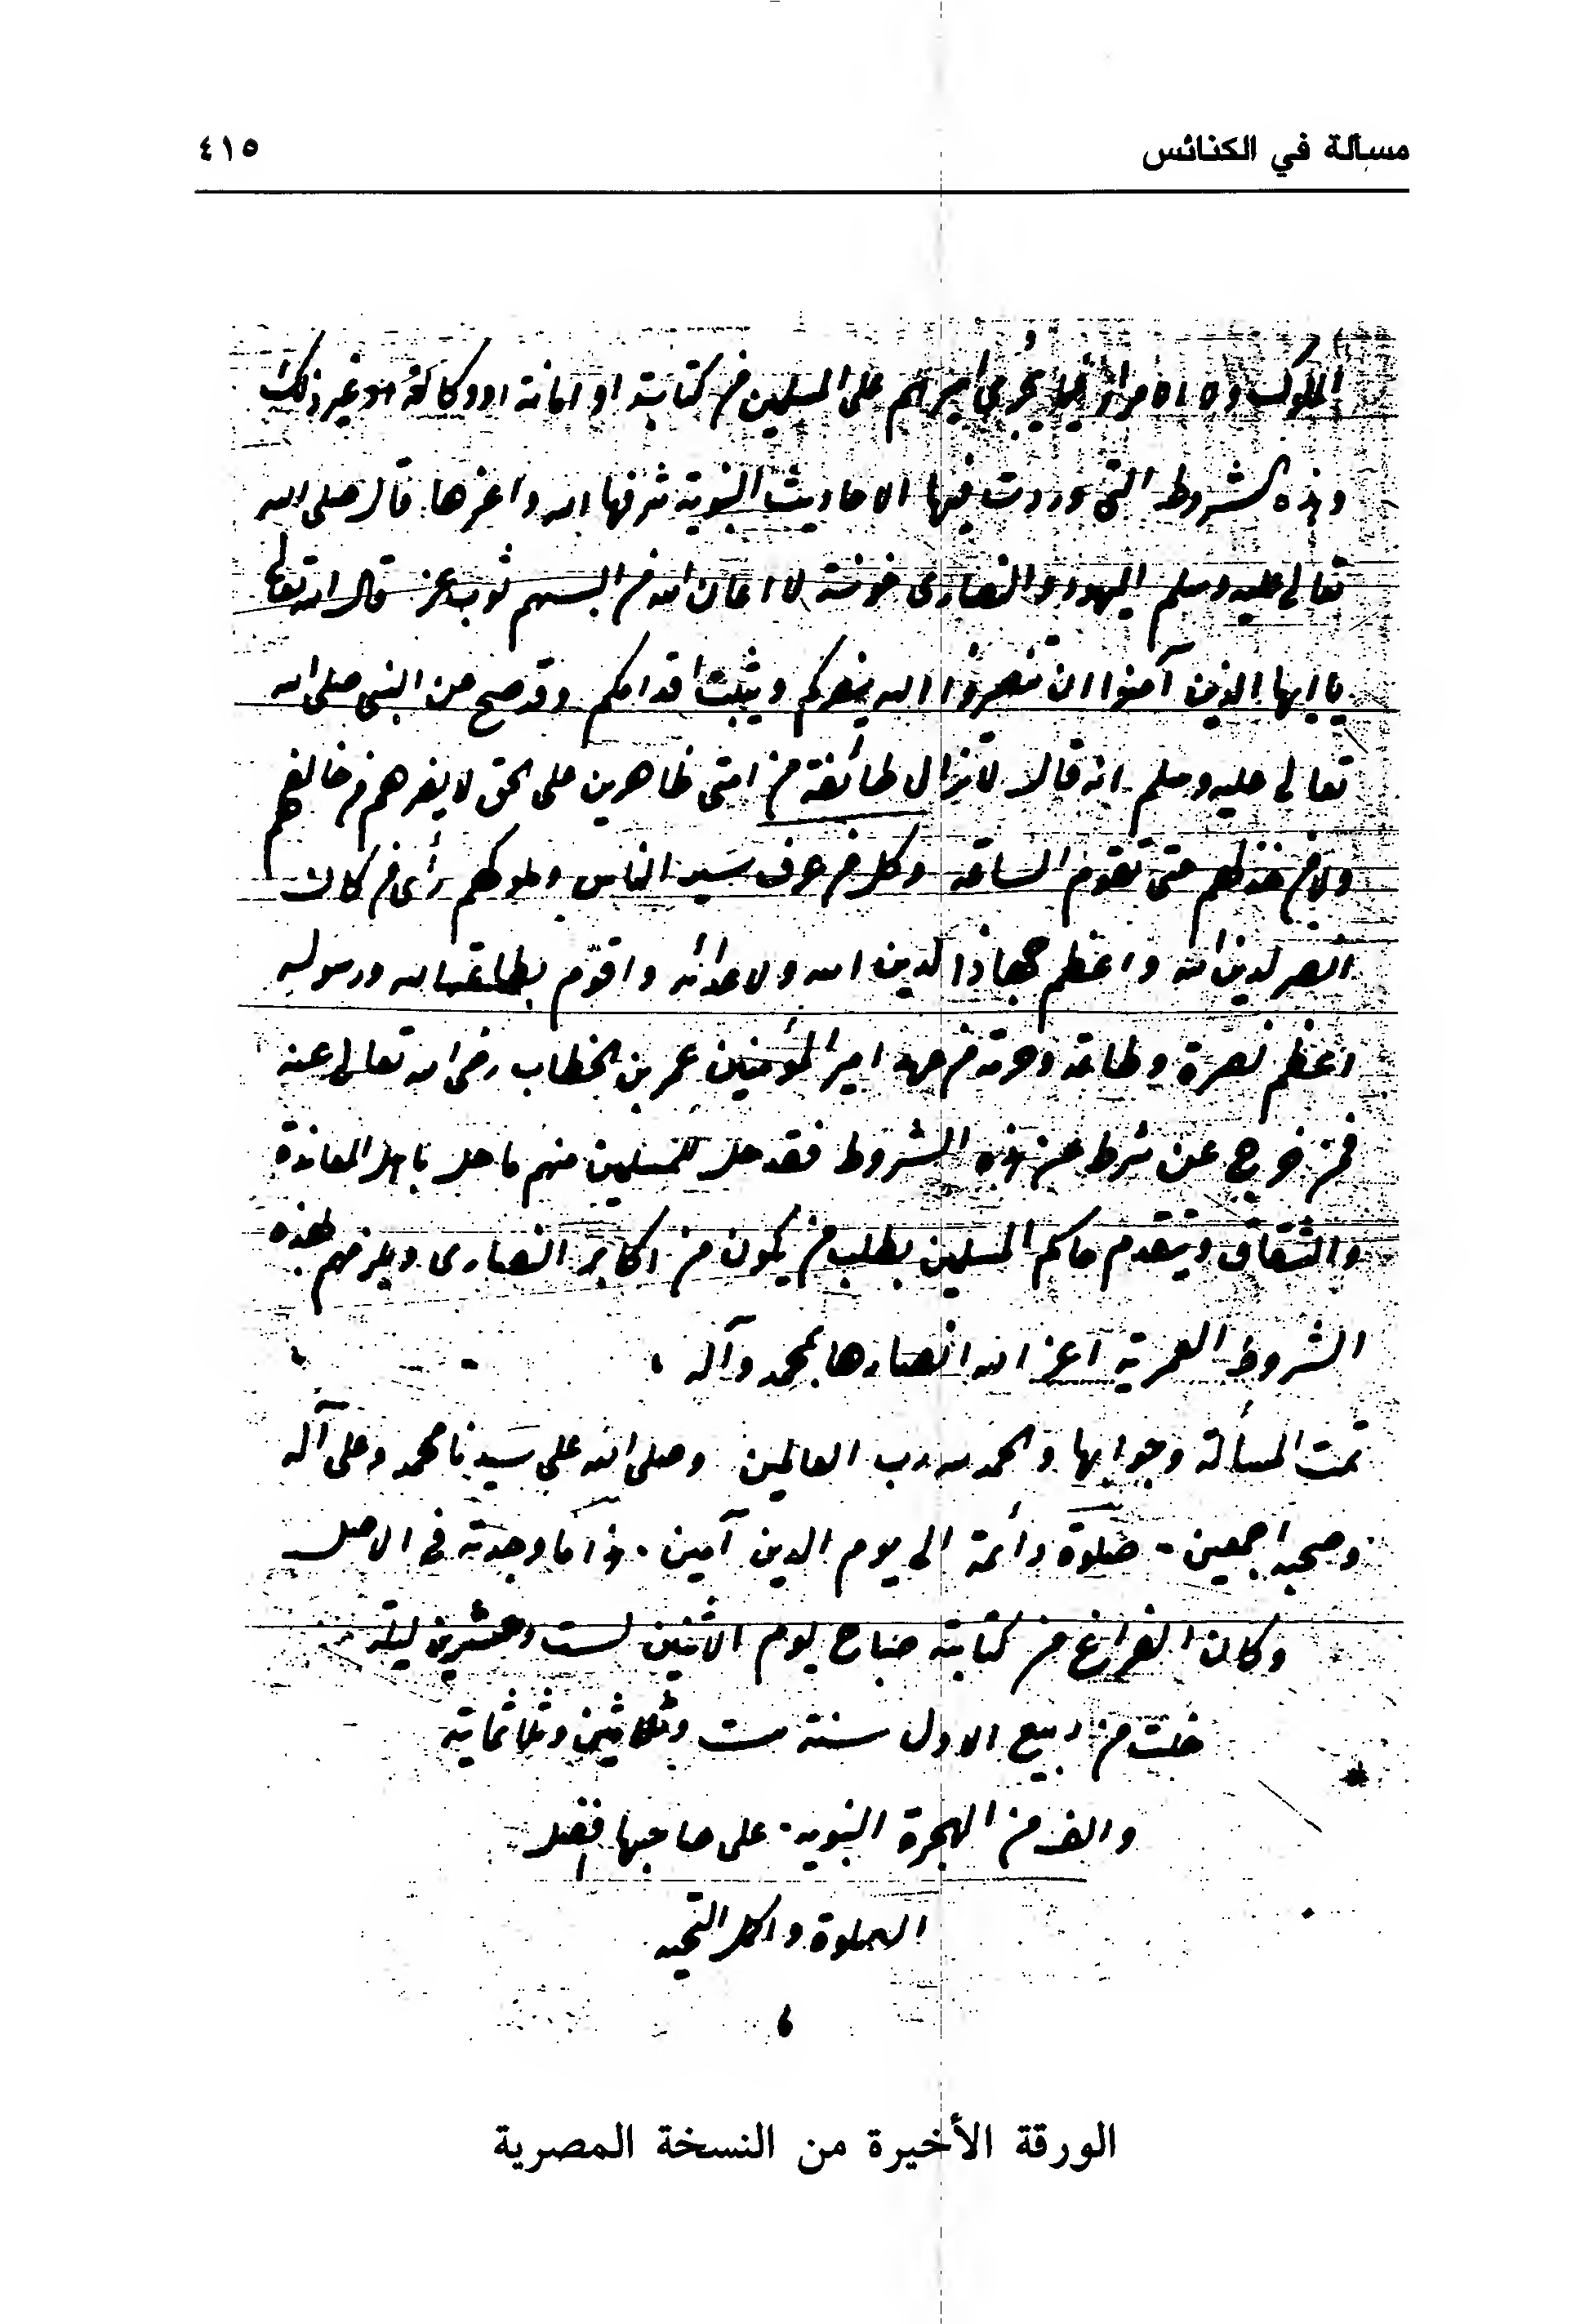 مسألة في الكنائس
٤١٥
الملوك ولا الامراء فيما يجرى امرهم على المسلمين من كتابة او امانة او وكالة او غير ذلك
وهذه الشروط التى وردت فيها الاحاديث النبوية شرفها الله واعزها قال صلى الله
تعالى عليه وسلم اليهود والنصارى خونة لا اعان الله من البسهم ثوب عز قال الله تعالى
يا ايها الذين آمنوا ان تنصروا الله ينصركم ويثبت اقدامكم وقد صح عن النبى صلى الله
تعالى عليه وسلم انه قال لا تزال طائفة من امتى ظاهرين على الحق لا يضرهم من خالفهم
ولا من خذلهم حتى تقوم الساعة وكل من عرف سير الناس وملوكهم رأى من كان
انصر لدين الله واعظم جهادا لدين الله ولاعدائه واقوم بطاعة الله ورسوله
اعظم نصرة وطاعة وحرمة من عهد امير المؤمنين عمر بن الخطاب رضى الله تعالى عنه
فمن خرج عن شرط من هذه الشروط فقد حل للمسلمين منهم ما حل باهل المعاندة
والشقاق ويتقدم حاكم المسلمين بطلب من يكون من اكابر النصارى ويلزمهم بهذه
الشروط العمرية اعز الله انصارها بمحمد وآله
تمت المسألة وجوابها والحمد لله رب العالمين وصلى الله على سيدنا محمد وعلى آله
وصحبه اجمعين صلوة دائمة الى يوم الدين آمين هذا ما وجدته فى الاصل
وكان الفراغ من كتابته صباح يوم الاثنين لست وعشرين ليلة
خلت من ربيع الاول سنة ست وثلاثين وثلاثمائة
والف من الهجرة النبوية على صاحبها افضل
الصلوة واكمل التحيه
الورقة الأخيرة من النسخة المصرية